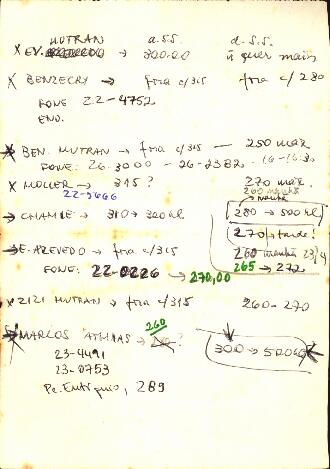 MUTRAN a.S.S. d.S.S.
X EV. → 300.00 ñ quer mais
X BENZECRY → fma c/315 fma c/280
FONE 22-4752
END.
X BEN. MUTRAN → fma c/315 — 250 max
FONE: 26-3000 - 26-2382
X MOLLER → 315? 270 max.
22-5666
260 manhã
→ CHAMIE → 310 → 320 280 → 500
270 → tarde!
260 manhã 23/4
265 → 272
→ E. AZEVEDO → fma c/315
FONE: 22-0226 → 270,00
X ZIZI MUTRAN → fma c/315 260-270
260
X MARCOS ATHIAS → ? 300 → 500
23-4491
23-0753
Pe. Eutíquio, 289